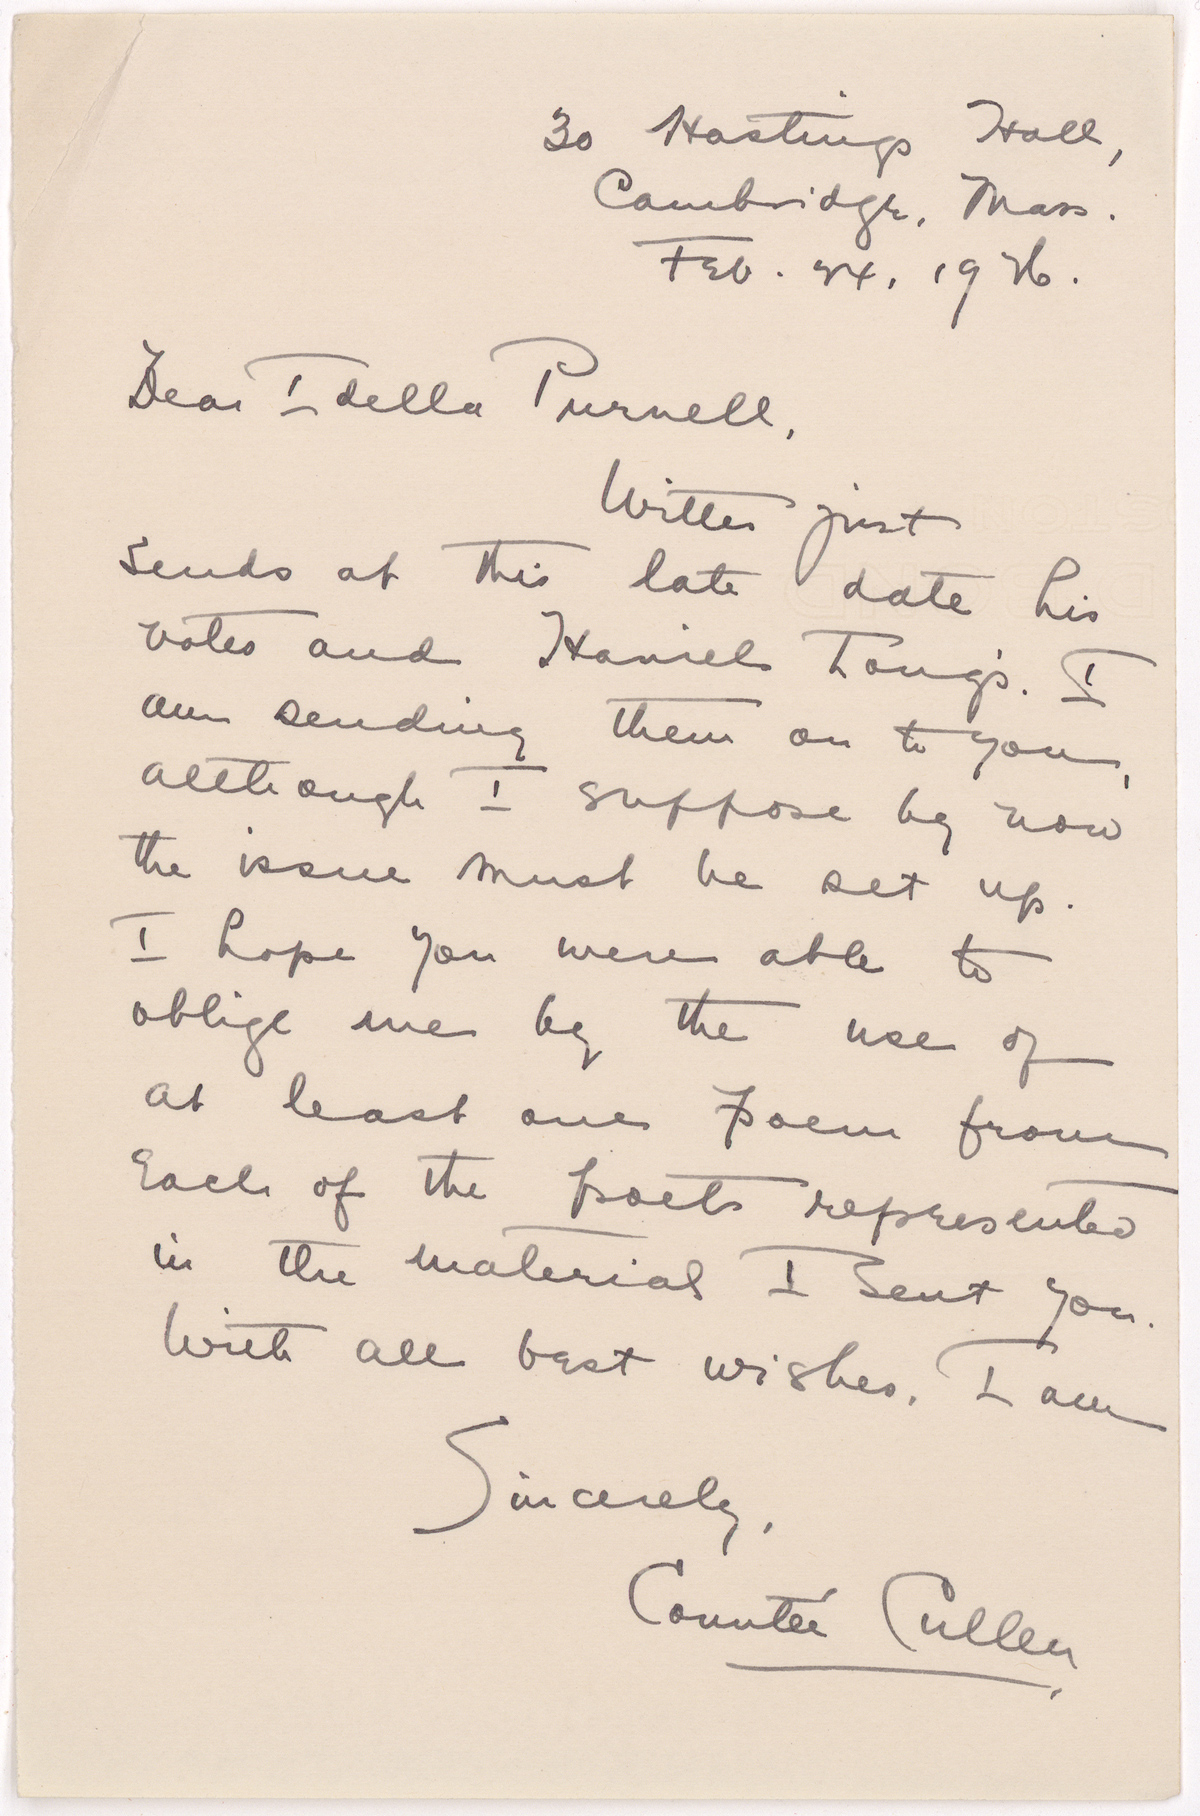 30 Hastings Hall,
Cambridge, Mass.
Feb. 24, 1926.
Dear Idella Purnell,
Witter just
sends at this late date his
votes and Haniel Long's. I
am sending them on to you,
although I suppose by now
the issue must be set up.
I hope you were able to
oblige me by the use of
at least one poem from
each of the poets represented
in the material I sent you.
With all best wishes, I am
Sincerely,
Countée Cullen